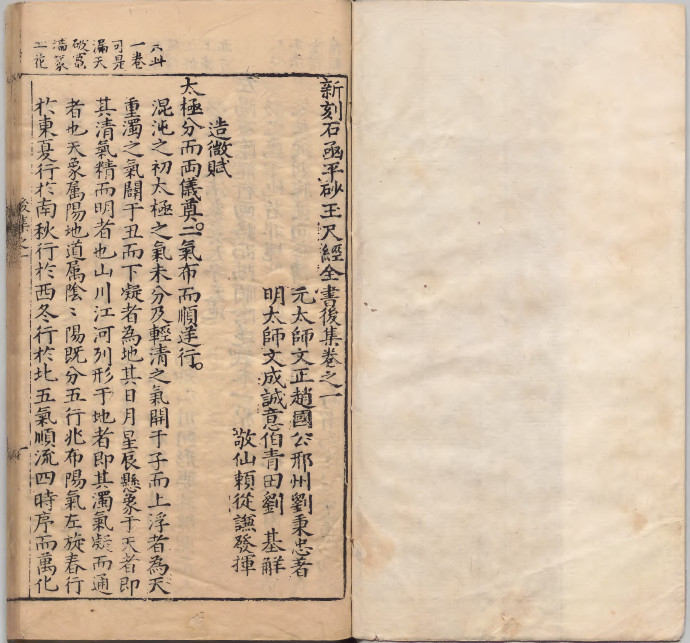 新刻石函平砂玉尺經全書後集卷之一
元太師文正趙國公邢州劉秉忠著
明太師文成誠意伯青田劉　基解
敬仙賴從謙發揮
造微賦
太極分而両儀奠。二氣布而順逆行。
混沌之初太極之氣未分及輕清之氣開于子而上浮者為天
重濁之氣闢于丑而下凝者為地其日月星辰懸象于天者即
其清氣精而明者也山川江河列形于地者即其濁氣凝而通
者也天象属陽地道属陰〻陽既分五行兆布陽氣左旋春行
於東夏行於南秋行於西冬行於北五氣順流四時序而萬化
後集之一
一卷
可是
漏天